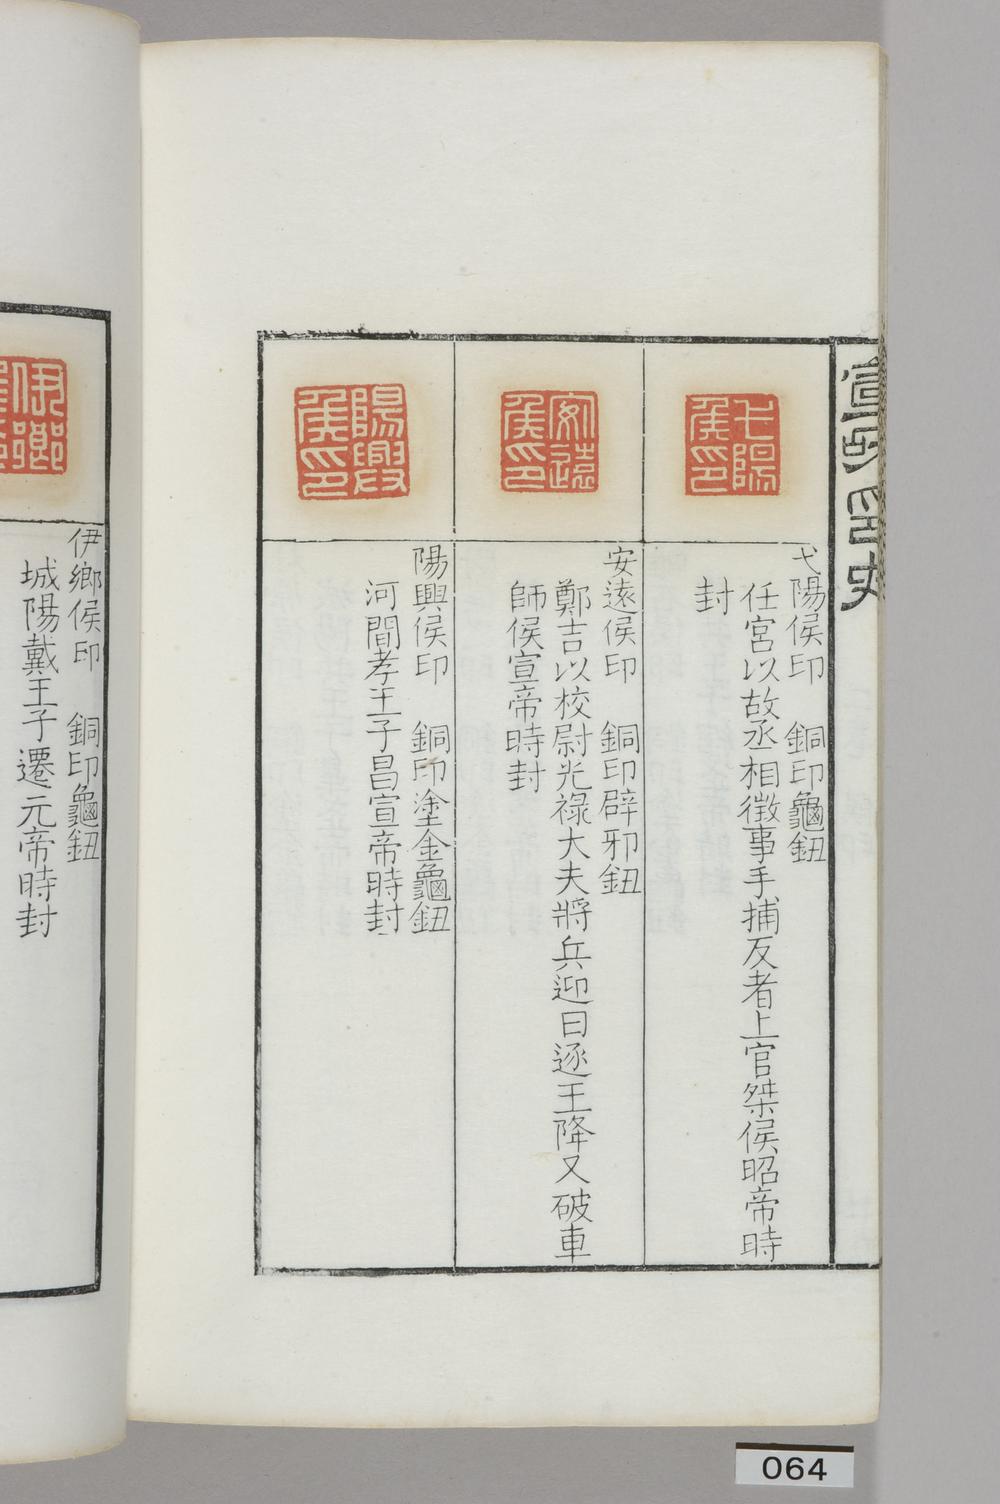 宣和印史
弋陽侯印
弋陽侯印　銅印龜鈕
任宮以故丞相徵事手捕反者上官桀侯昭帝時
封
安遠侯印
安遠侯印　銅印辟邪鈕
鄭吉以校尉光祿大夫將兵迎日逐王降又破車
師侯宣帝時封
陽興侯印
陽興侯印　銅印塗金龜鈕
河間孝王子昌宣帝時封
伊鄉侯印
伊鄉侯印　銅印龜鈕
城陽戴王子遷元帝時封
064